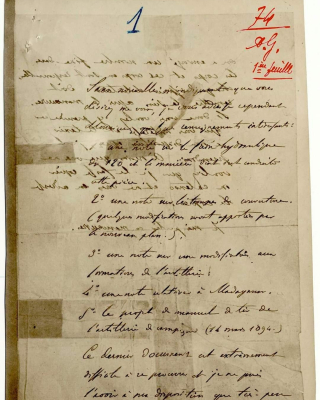 1
74
A.G.
1ère feuille
Sans nouvelles m'indiquant que vous
désirez me voir, je vous adresse cependant
Monsieur quelques renseignements intéressants :
1° une note sur le frein hydraulique
du 120 et la manière dont s'est conduite
cette pièce.
2° une note sur les troupes de couverture.
(quelques modifications sont apportées par
le nouveau plan.)
3° une note sur une modification aux
formations de l'artillerie :
4° une note relative à Madagascar.
5° le projet de manuel de tir de
l'artillerie de campagne (14 mars 1894.)
Ce dernier document est extrêmement
difficile à se procurer et je ne puis
l'avoir à ma disposition que très peu